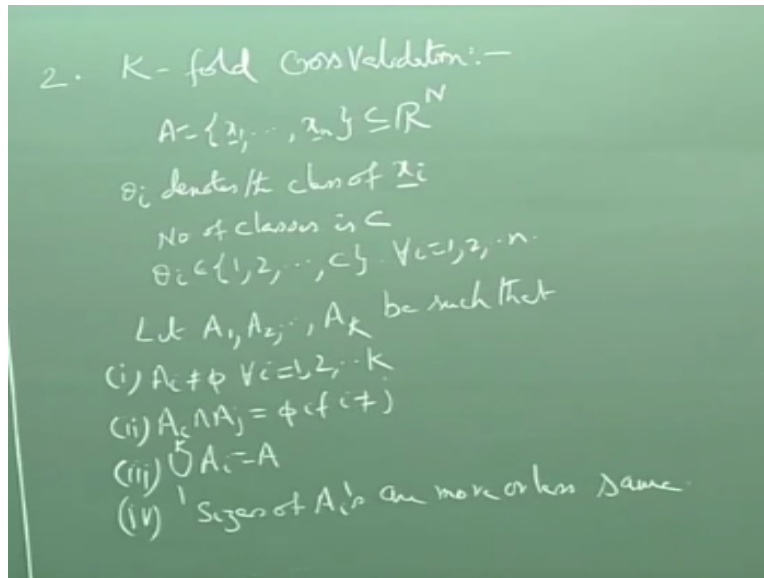 2. K-fold Cross Validation:-
A = {x̲₁, ..., x̲ₙ} ⊆ ℝᴺ
θᵢ denotes the class of x̲ᵢ
No of classes is C
θᵢ ∈ {1, 2, ..., C} ∀i=1, 2, ..n.
Let A₁, A₂, .., Aₖ be such that
(i) Aᵢ ≠ φ ∀i=1, 2, ..K
(ii) Aᵢ ∩ Aⱼ = φ if i ≠ j
(iii) ᴷ∪₁ Aᵢ = A
(iv) Sizes of Aᵢ's are more or less same.